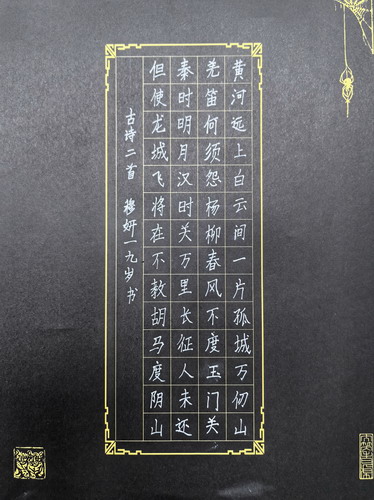 黄河远上白云间一片孤城万仞山
羌笛何须怨杨柳春风不度玉门关
秦时明月汉时关万里长征人未还
但使龙城飞将在不教胡马度阴山
古诗二首 穆妍一九岁书